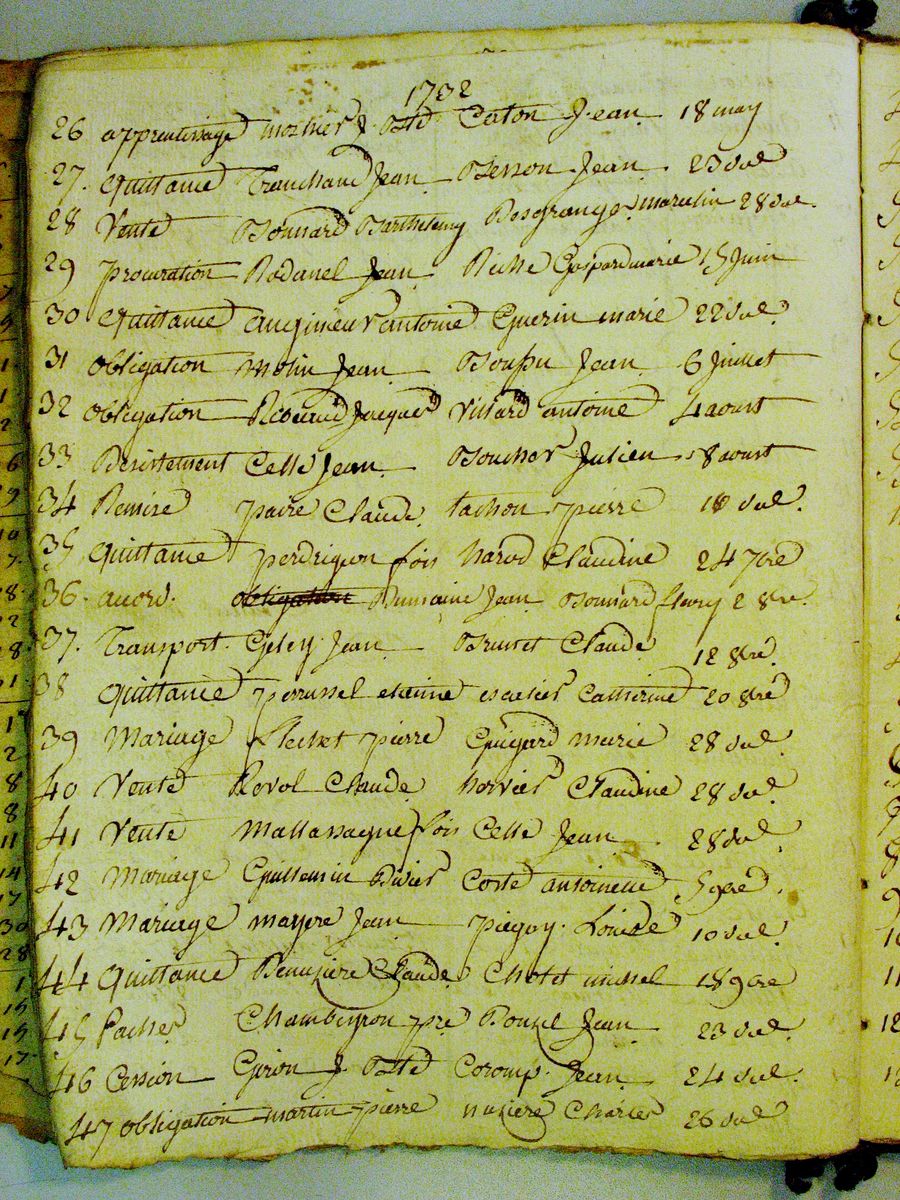 1732
26 apprentissage mosnier J. Bte Caton Jean 18 may
27. Quittance Tranchand Jean Besson Jean 23 dud
28 Vente Bonnard Barthelemy Desgranges marcelin 28 dud.
29 procuration Rodanel Jean Riche Gaspard marie 15 Juin
30 Quittance antoine Guerin marie 22 dud.
31 obligation Molin Jean Jean 6 Juillet
32 obligation Jacques Villard antoine 4 aoust
33 Desistement Celle Jean Boucher Julien 8 aoust
34 Remise paire Claude. tachon pierre 18 dud.
35 Quittance perdrigeon fois Claudine 24 7bre
36. acord. obligation Dumaine Jean Bonnard fleury 2 8re.
37. Transport. Geley Jean Brunet Claude 12 8re.
38 Quittance perrussel etienne Catherine 20 8re
39 Mariage flechet pierre Guigard marie 28 dud.
40 Vente Revol Claude Claudine 28 dud.
41 Vente Mallassagne fois Celle Jean 28 dud
42 Mariage Guillemin Coste antoinette 5 9bre.
43 Mariage mayere Jean piegay Louise 10 dud.
44 Quittance Claude Chotet michel 18 9bre
45 Chambeyron pre Jean 23 dud.
46 Cession Giron J. Bte Coromp. Jean 24 dud.
47 obligation martin pierre Charles 26 dud